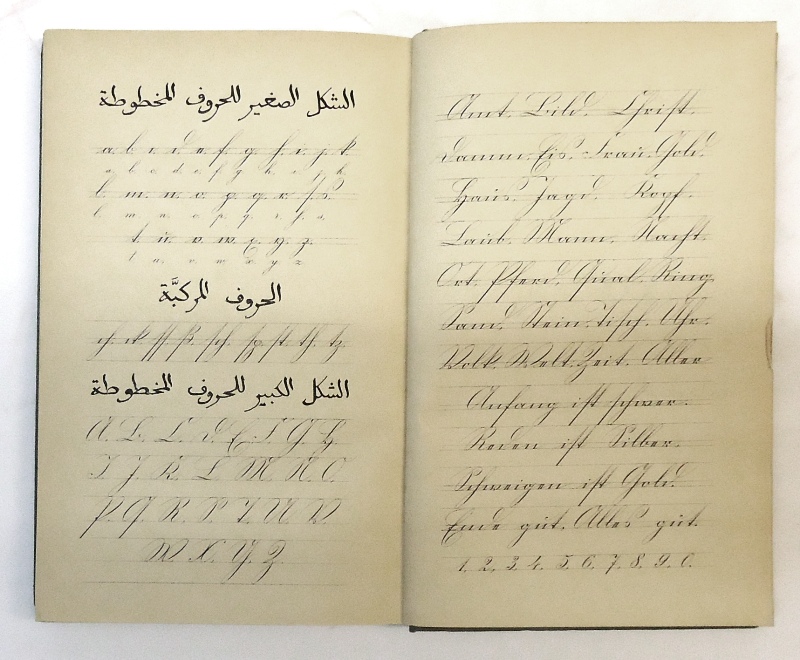 الشكل الصغير للحروف المخطوطة
a. b. c. d. e. f. g. h. i. j. k.
a b c d e f g h i j k
l. m. n. o. p. q. r. ſ. s.
l. m n o p q r ſ s
t. u. v. w. x. y. z.
t u v w x y z
الحروف المركبَّة
ch. ck. ff. ß. sch. sp. st. th. tz.
الشكل الكبير للحروف المخطوطة
A. B. C. D. E. F. G. H.
I. J. K. L. M. N. O.
P. Q. R. S. T. U. V.
W. X. Y. Z.
Amt. Bild. Christ.
Damm. Eis. Frau. Gold.
Haus. Jagd. Kopf.
Laub. Mann. Nacht.
Ort. Pferd. Qual. Ring.
Sand. Stein. Tisch. Uhr.
Volk. Welt. Zeit. Aller
Anfang ist schwer.
Reden ist Silber.
Schweigen ist Gold.
Ende gut. Alles gut.
1. 2. 3. 4. 5. 6. 7. 8. 9. 0.